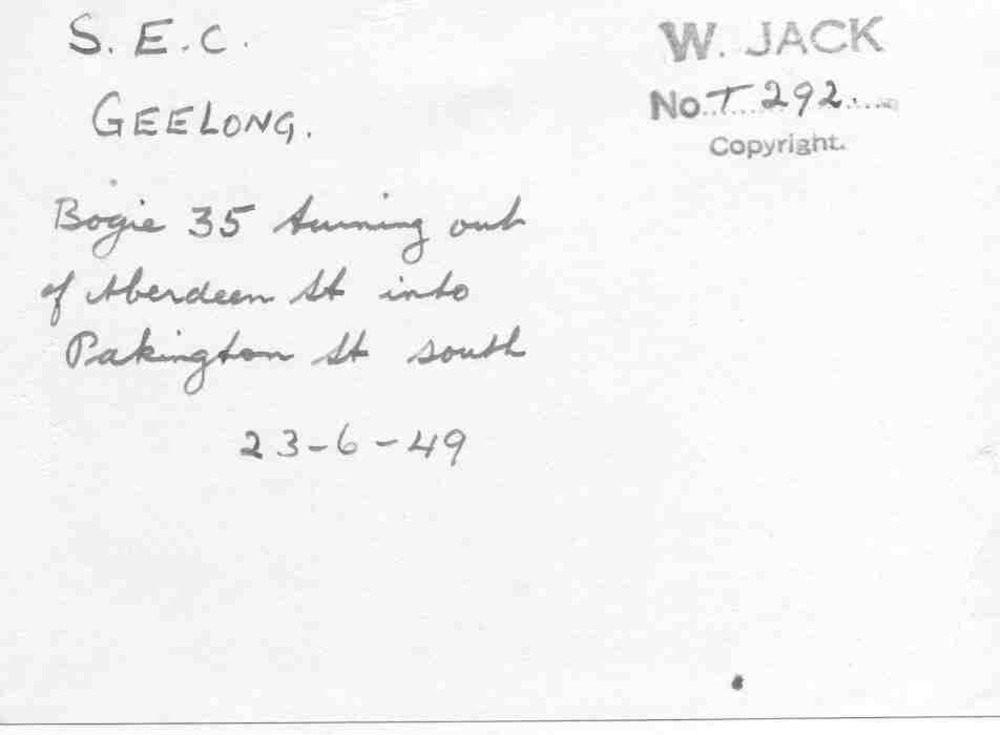 S. E. C.
GEELONG.
Bogie 35 turning out
of Aberdeen St into
Pakington St south
23-6-49
W. JACK
No. T 292.
Copyright.